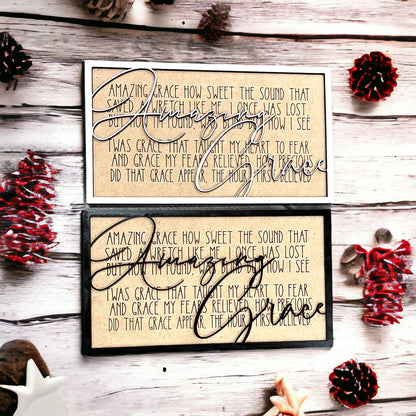 AMAZING GRACE HOW SWEET THE SOUND THAT
SAVED A WRETCH LIKE ME. I ONCE WAS LOST,
BUT NOW I'M FOUND, WAS BLIND BUT NOW I SEE
I WAS GRACE THAT TAUGHT MY HEART TO FEAR
AND GRACE MY FEARS RELIEVED. HOW PRECIOUS
DID THAT GRACE APPEAR, THE HOUR I FIRST BELIEVED
Amazing
Grace
AMAZING GRACE HOW SWEET THE SOUND THAT
SAVED A WRETCH LIKE ME. I ONCE WAS LOST,
BUT NOW I'M FOUND, WAS BLIND BUT NOW I SEE
I WAS GRACE THAT TAUGHT MY HEART TO FEAR
AND GRACE MY FEARS RELIEVED. HOW PRECIOUS
DID THAT GRACE APPEAR, THE HOUR I FIRST BELIEVED
Amazing
Grace